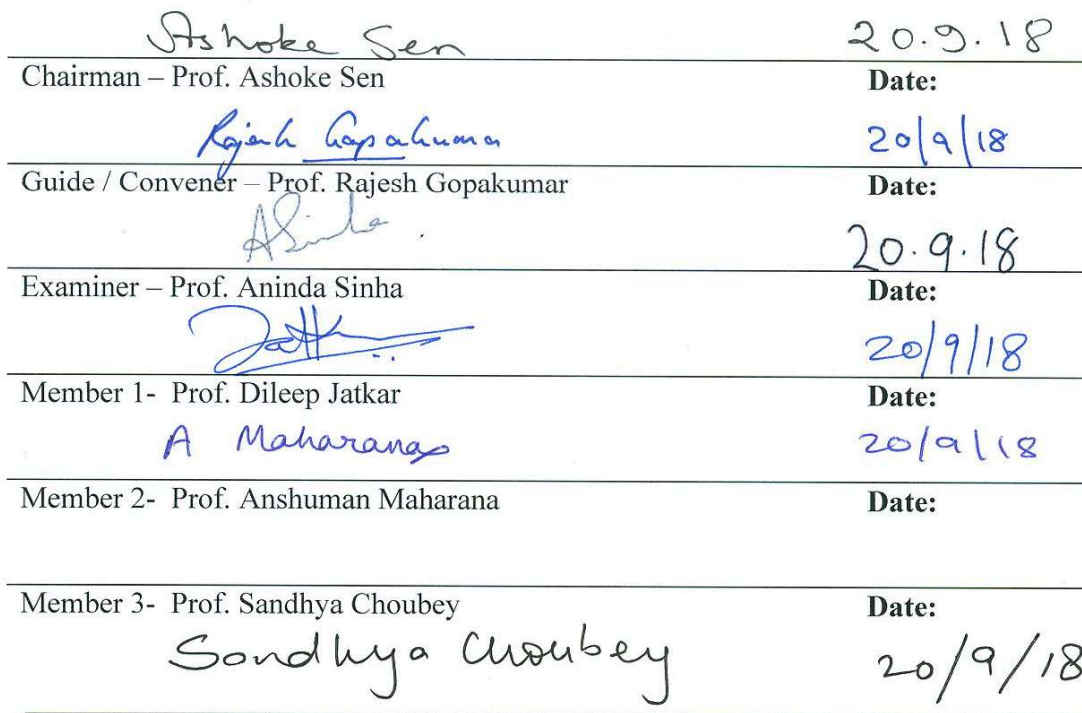 Ashoke Sen 20.9.18
Chairman – Prof. Ashoke Sen Date:
Rajesh Gopakumar 20/9/18
Guide / Convener – Prof. Rajesh Gopakumar Date:
ASinha 20.9.18
Examiner – Prof. Aninda Sinha Date:
20/9/18
Member 1- Prof. Dileep Jatkar Date:
A Maharana 20/9/18
Member 2- Prof. Anshuman Maharana Date:
Member 3- Prof. Sandhya Choubey Date:
Sandhya Choubey 20/9/18